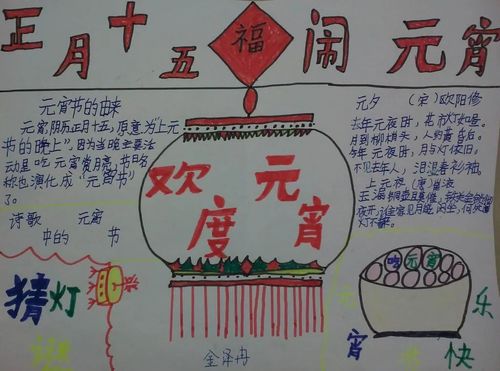 正月十五 福 闹元宵
元宵节的由来
元宵阴历正月十五,原意为"上元
节的晚上",因为当晚主要活
动是吃元宵赏月亮,节日名
称也演化成"元宵节"
了。
诗歌 元宵
中的 节
猜灯
谜
欢度元宵
金泽冉
元夕 (宋)欧阳修
去年元夜时,花市灯如昼。
月到柳梢头,人约黄昏后。
今年元夜时,月与灯依旧,
不见去年人,泪湿春衫袖。
上元夜 (唐)崔液
玉漏铜壶且莫催,铁关金锁彻
夜开,谁家见月能闲坐,何处闻
灯不看来。
吃元宵
元宵节快乐